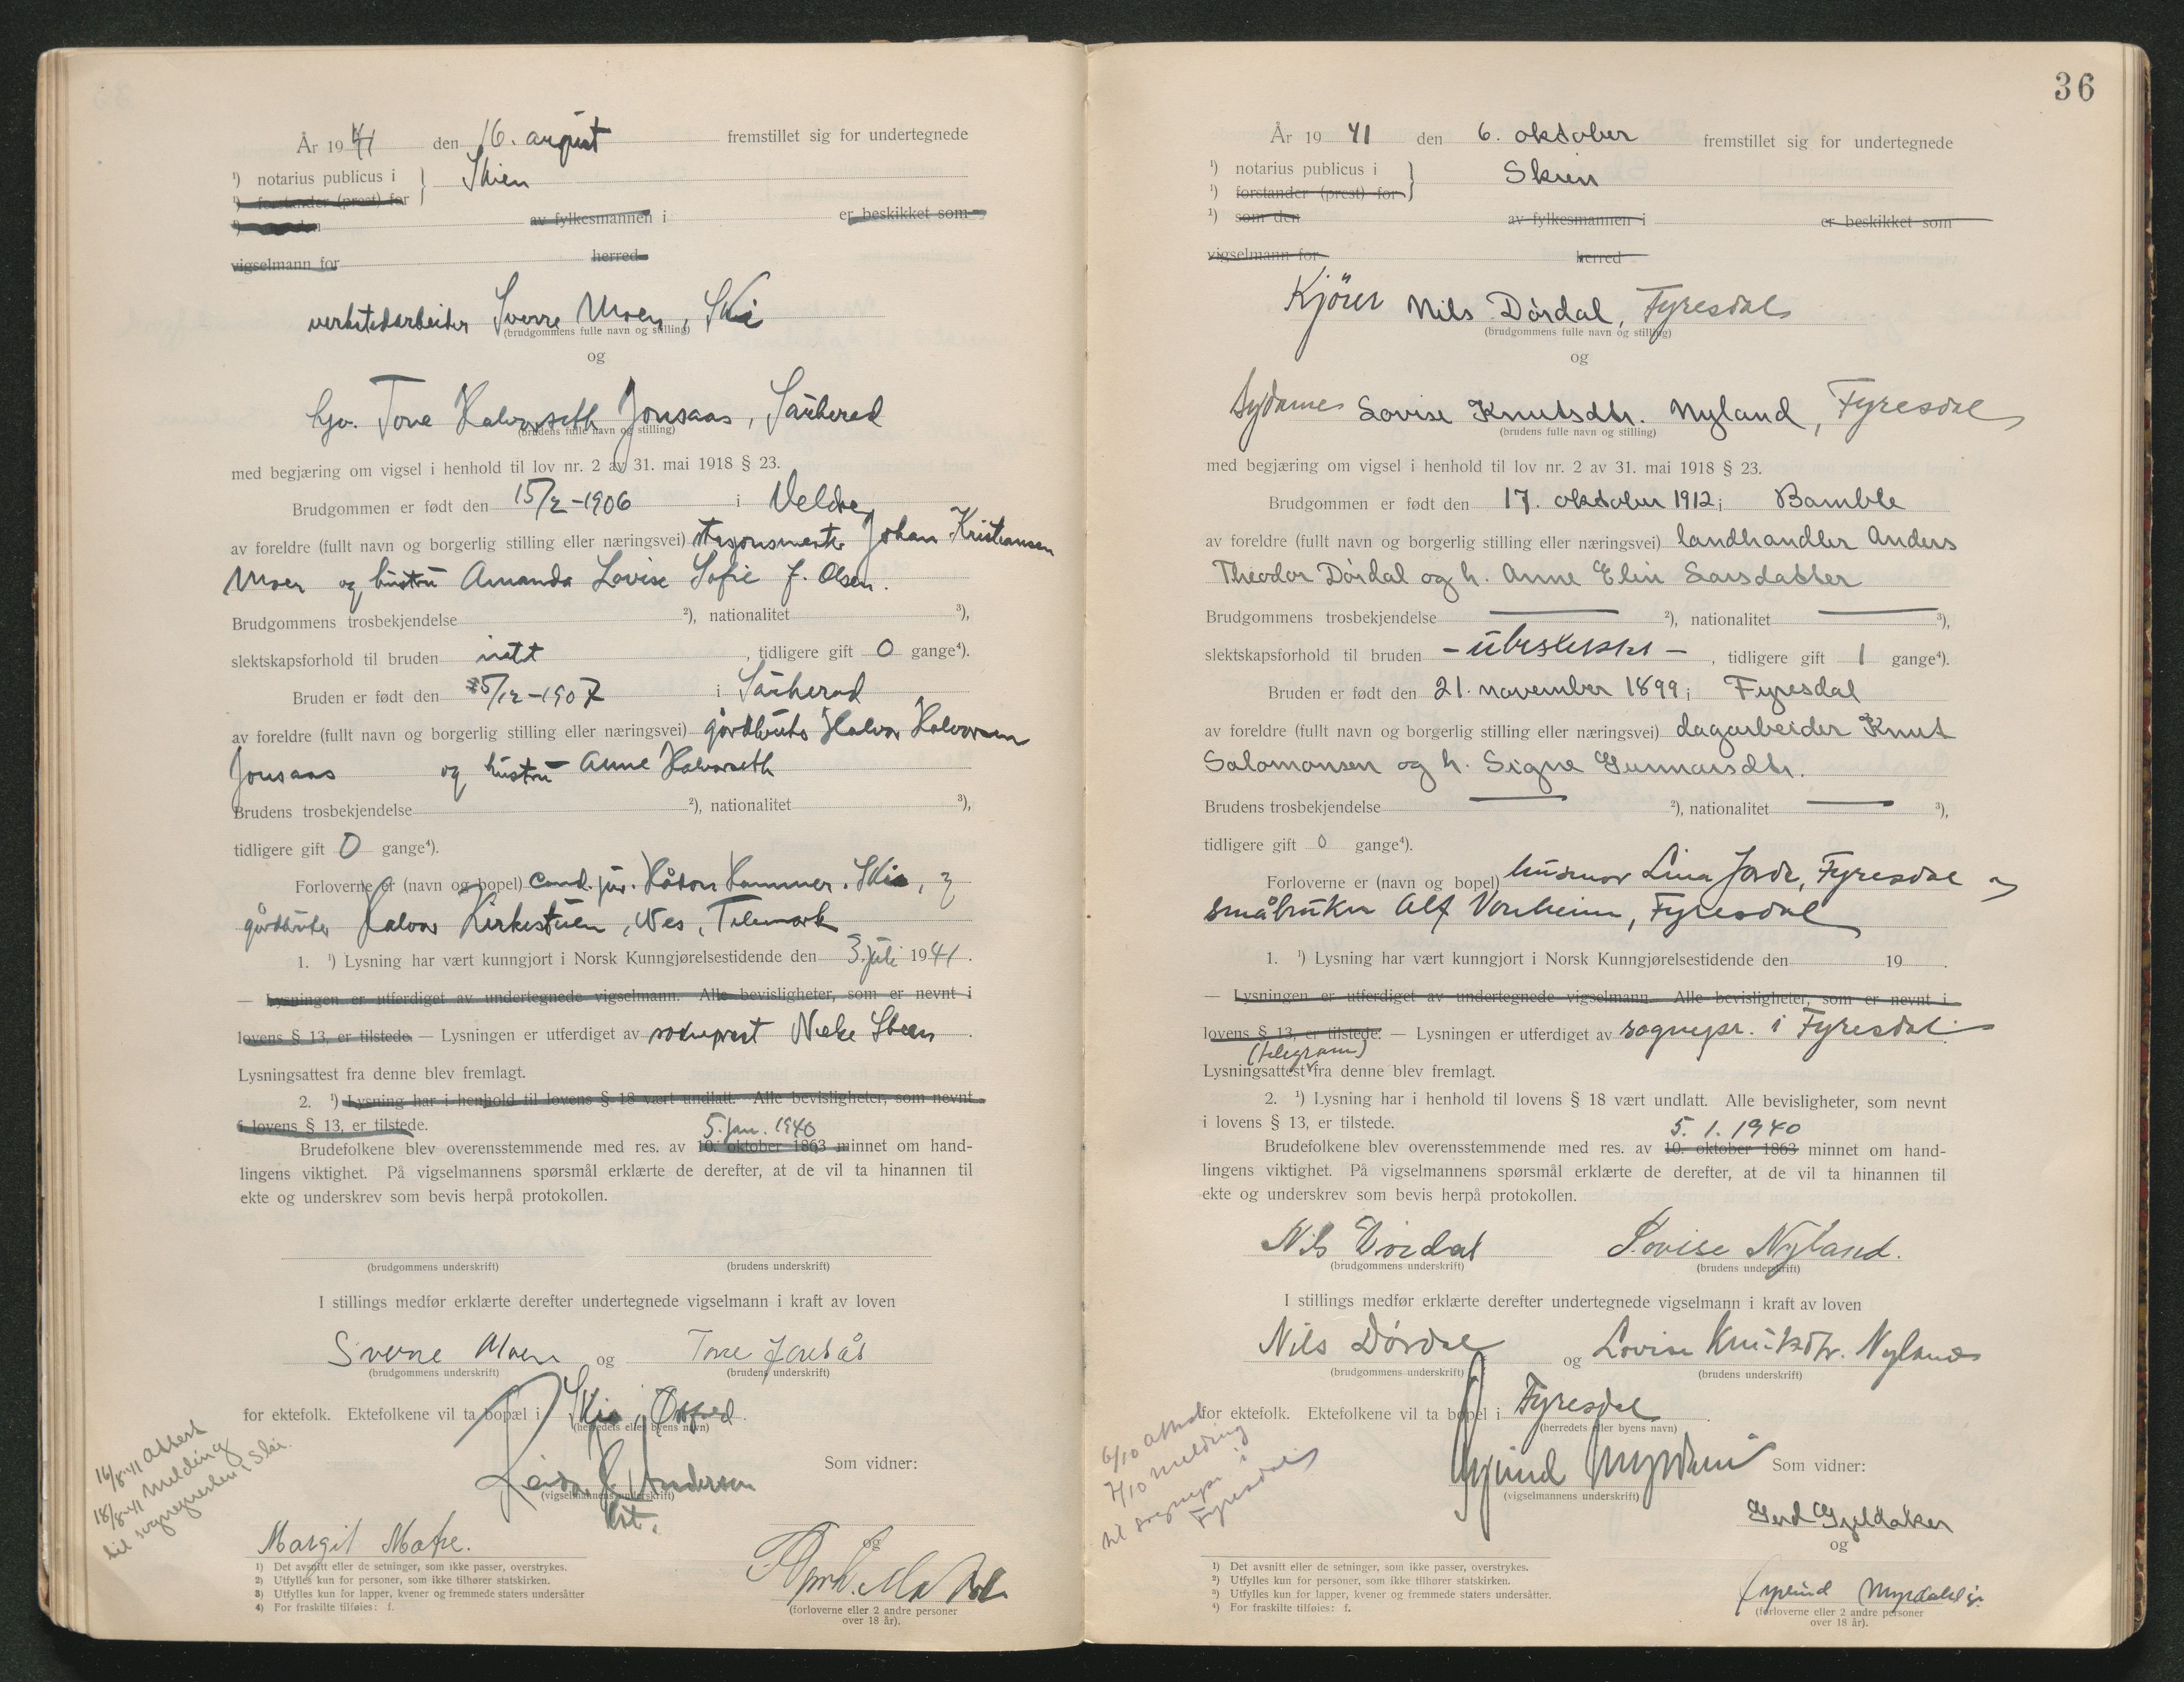 År 1941 den 16. august fremstillet sig for undertegnede
¹) notarius publicus i } Skien
¹) forstander (prest) for
¹) som den av fylkesmannen i er beskikket som
vigselmann for herred
verkstedarbeider Sverre Moen, Ski
(brudgommens fulle navn og stilling)
og
frk. Tone Halvorseth Jonsaas, Sauherad
(brudens fulle navn og stilling)
med begjæring om vigsel i henhold til lov nr. 2 av 31. mai 1918 § 23.
Brudgommen er født den 15/2-1906 i Veldre
av foreldre (fullt navn og borgerlig stilling eller næringsvei) stasjonsmester Johan Kristiansen
Moen og hustru Amanda Lovise Sofie f. Olsen.
Brudgommens trosbekjendelse ²), nationalitet ³),
slektskapsforhold til bruden intet, tidligere gift 0 gange⁴).
Bruden er født den 25/12-1907 i Sauherad
av foreldre (fullt navn og borgerlig stilling eller næringsvei) gårdbruker Halvor Halvorsen
Jonsaas og hustru Anne Halvorseth
Brudens trosbekjendelse ²), nationalitet ³),
tidligere gift 0 gange⁴).
Forloverne er (navn og bopel) cand. jur. Håkon Hammer, Ski, og
gårdbruker Halvor Kirkestuen, Nes, Telemark
1. ¹) Lysning har vært kunngjort i Norsk Kunngjørelsestidende den 3. juli 1941.
— Lysningen er utferdiget av undertegnede vigselmann. Alle bevisligheter, som er nevnt i
lovens § 13, er tilstede. — Lysningen er utferdiget av sokneprest Steen.
Lysningsattest fra denne blev fremlagt.
2. ¹) Lysning har i henhold til lovens § 18 vært undlatt. Alle bevisligheter, som nevnt
i lovens § 13, er tilstede.
5. jan. 1940
Brudefolkene blev overensstemmende med res. av 10. oktober 1863 minnet om hand-
lingens viktighet. På vigselmannens spørsmål erklærte de derefter, at de vil ta hinannen til
ekte og underskrev som bevis herpå protokollen.
(brudgommens underskrift) (brudens underskrift)
I stillings medfør erklærte derefter undertegnede vigselmann i kraft av loven
Sverre Moen og Tone Jonsås
(brudgommens underskrift) (brudens underskrift)
for ektefolk. Ektefolkene vil ta bopæl i Ski, Østfold
(herredets eller byens navn)
Reidar Andersen
(vigselmannens underskrift)
Som vidner:
16/8-41 attest
18/8-41 melding
til sognepresten i Ski.
Margit Mære.
og
(forloverne eller 2 andre personer
over 18 år).
1) Det avsnitt eller de setninger, som ikke passer, overstrykes.
2) Utfylles kun for personer, som ikke tilhører statskirken.
3) Utfylles kun for lapper, kvener og fremmede staters undersåtter
4) For fraskilte tilføies: f.
36
År 1941 den 6. oktober fremstillet sig for undertegnede
¹) notarius publicus i } Skien
¹) forstander (prest) for
¹) som den av fylkesmannen i er beskikket som
vigselmann for herred
Kjører Nils Dørdal, Fyresdal
(brudgommens fulle navn og stilling)
og
sydame Lovise Knutsdtr. Nyland, Fyresdal
(brudens fulle navn og stilling)
med begjæring om vigsel i henhold til lov nr. 2 av 31. mai 1918 § 23.
Brudgommen er født den 17. oktober 1912 i Bamble
av foreldre (fullt navn og borgerlig stilling eller næringsvei) landhandler Anders
Theodor Dørdal og h. Anne Elin Larsdatter
Brudgommens trosbekjendelse — ²), nationalitet — ³),
slektskapsforhold til bruden - ubeslektet -, tidligere gift 1 gange⁴).
Bruden er født den 21. november 1899 i Fyresdal
av foreldre (fullt navn og borgerlig stilling eller næringsvei) dagarbeider Knut
Salomonsen og h. Signe Gunnarsdtr.
Brudens trosbekjendelse — ²), nationalitet — ³),
tidligere gift 0 gange⁴).
Forloverne er (navn og bopel) husmor Lina Jorde, Fyresdal og
småbruker Alf Vonheim, Fyresdal
1. ¹) Lysning har vært kunngjort i Norsk Kunngjørelsestidende den 19 .
— Lysningen er utferdiget av undertegnede vigselmann. Alle bevisligheter, som er nevnt i
lovens § 13, er tilstede. — Lysningen er utferdiget av sognepr. i Fyresdal.
(telegram)
Lysningsattest fra denne blev fremlagt.
2. ¹) Lysning har i henhold til lovens § 18 vært undlatt. Alle bevisligheter, som nevnt
i lovens § 13, er tilstede.
5. 1. 1940
Brudefolkene blev overensstemmende med res. av 10. oktober 1863 minnet om hand-
lingens viktighet. På vigselmannens spørsmål erklærte de derefter, at de vil ta hinannen til
ekte og underskrev som bevis herpå protokollen.
Nils Dørdal Lovise Nyland.
(brudgommens underskrift) (brudens underskrift)
I stillings medfør erklærte derefter undertegnede vigselmann i kraft av loven
Nils Dørdal og Lovise Knutsdtr. Nyland
(brudgommens underskrift) (brudens underskrift)
for ektefolk. Ektefolkene vil ta bopel i Fyresdal.
(herredets eller byens navn)
Øyvind Myrdahl
(vigselmannens underskrift)
Som vidner:
6/10 attest
7/10 melding
til sognepr. i
Fyresdal
Gerd Gjeldaker
og
Øyvind Myrdahl jr.
(forloverne eller 2 andre personer
over 18 år).
¹) Det avsnitt eller de setninger, som ikke passer, overstrykes.
²) Utfylles kun for personer, som ikke tilhører statskirken.
³) Utfylles kun for lapper, kvener og fremmede staters undersåtter.
⁴) For fraskilte tilføies: f.